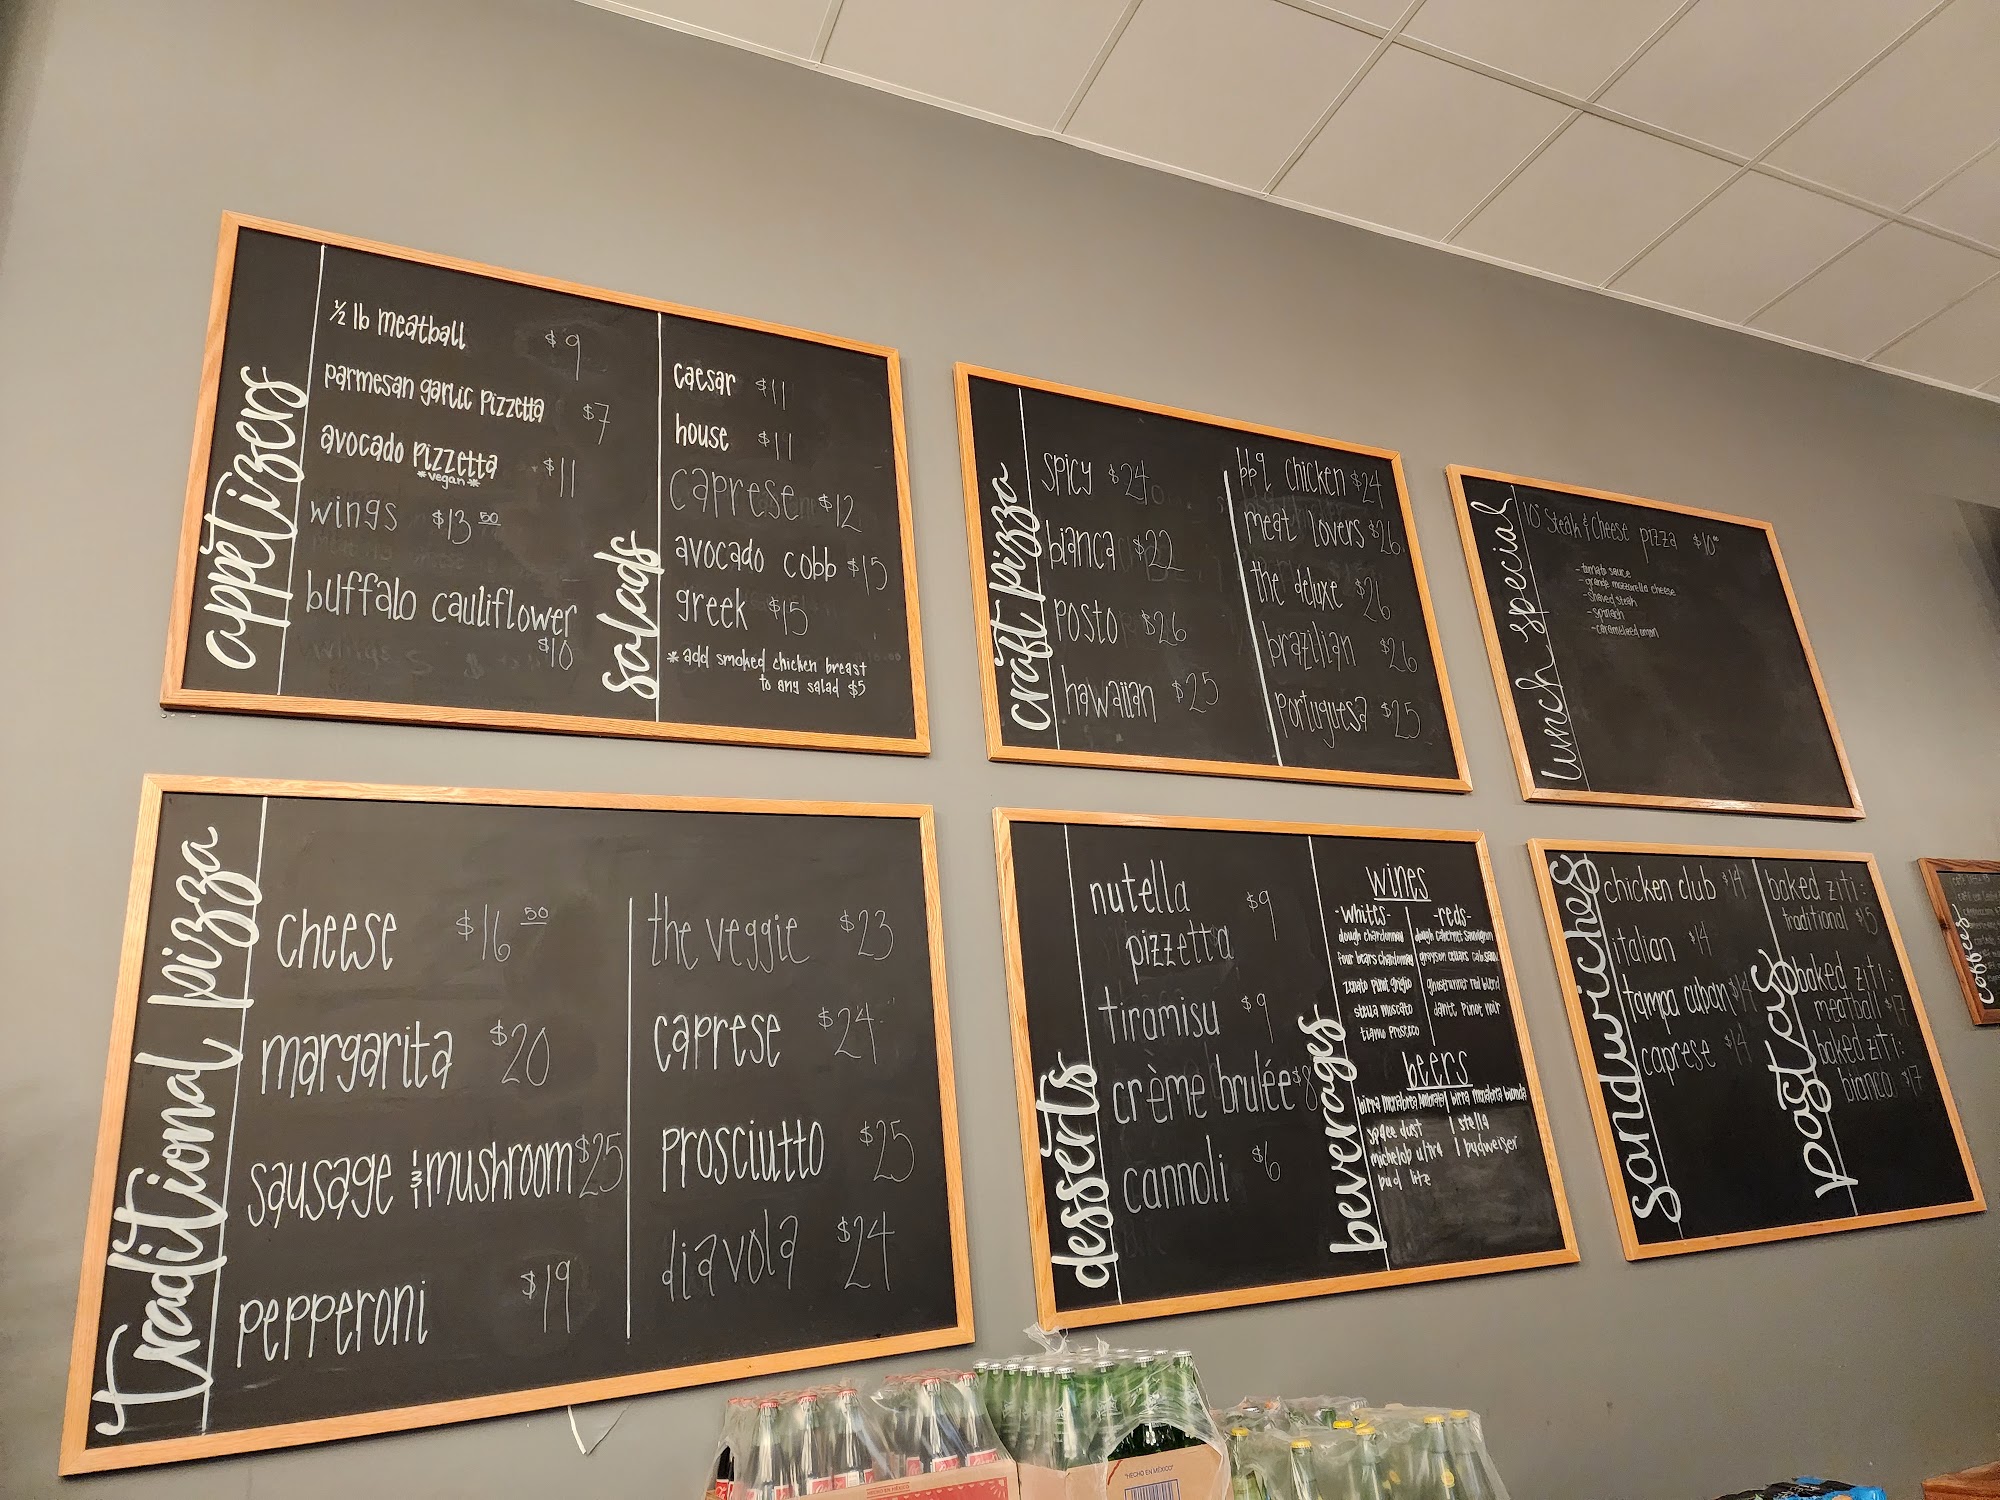 appetizers
½ lb meatball $9
parmesan garlic pizzetta $7
avocado pizzetta $11
*vegan*
wings $13 50
buffalo cauliflower
$10
salads
caesar $11
house $11
caprese $12
avocado cobb $15
greek $15
* add smoked chicken breast
to any salad $5
craft pizza
spicy $24
bianca $22
posto $26
hawaiian $25
bbq chicken $24
meat lovers $26
the deluxe $26
brazilian $26
portuguesa $25
lunch special
10" Steak & Cheese pizza $10
- tomato sauce
- grande mozzarella cheese
- shaved steak
- spinach
- caramelized onion
traditional pizza
cheese $16 50
margarita $20
sausage & mushroom $25
pepperoni $19
the veggie $23
caprese $24
prosciutto $25
diavola $24
desserts
nutella
pizzetta $9
tiramisu $9
crème brulée $8
cannoli $6
beverages
wines
-whites-
dough chardonnay
four bears chardonnay
pinot grigio
stella muscato
prosecco
-reds-
dough cabernet sauvignon
grayson cellars cab sauv.
ghostrunner red blend
pinot noir
beers
birra menabrea ambrata | birra menabrea bionda
space dust | stella
michelob ultra | budweiser
bud lite
sandwiches
chicken club $14
italian $14
tampa cuban $14
caprese $14
pastas
baked ziti:
traditional $15
baked ziti:
meatball $17
baked ziti:
bianco $17
coffees
HECHO EN MÉXICO
"HECHO EN MÉXICO"